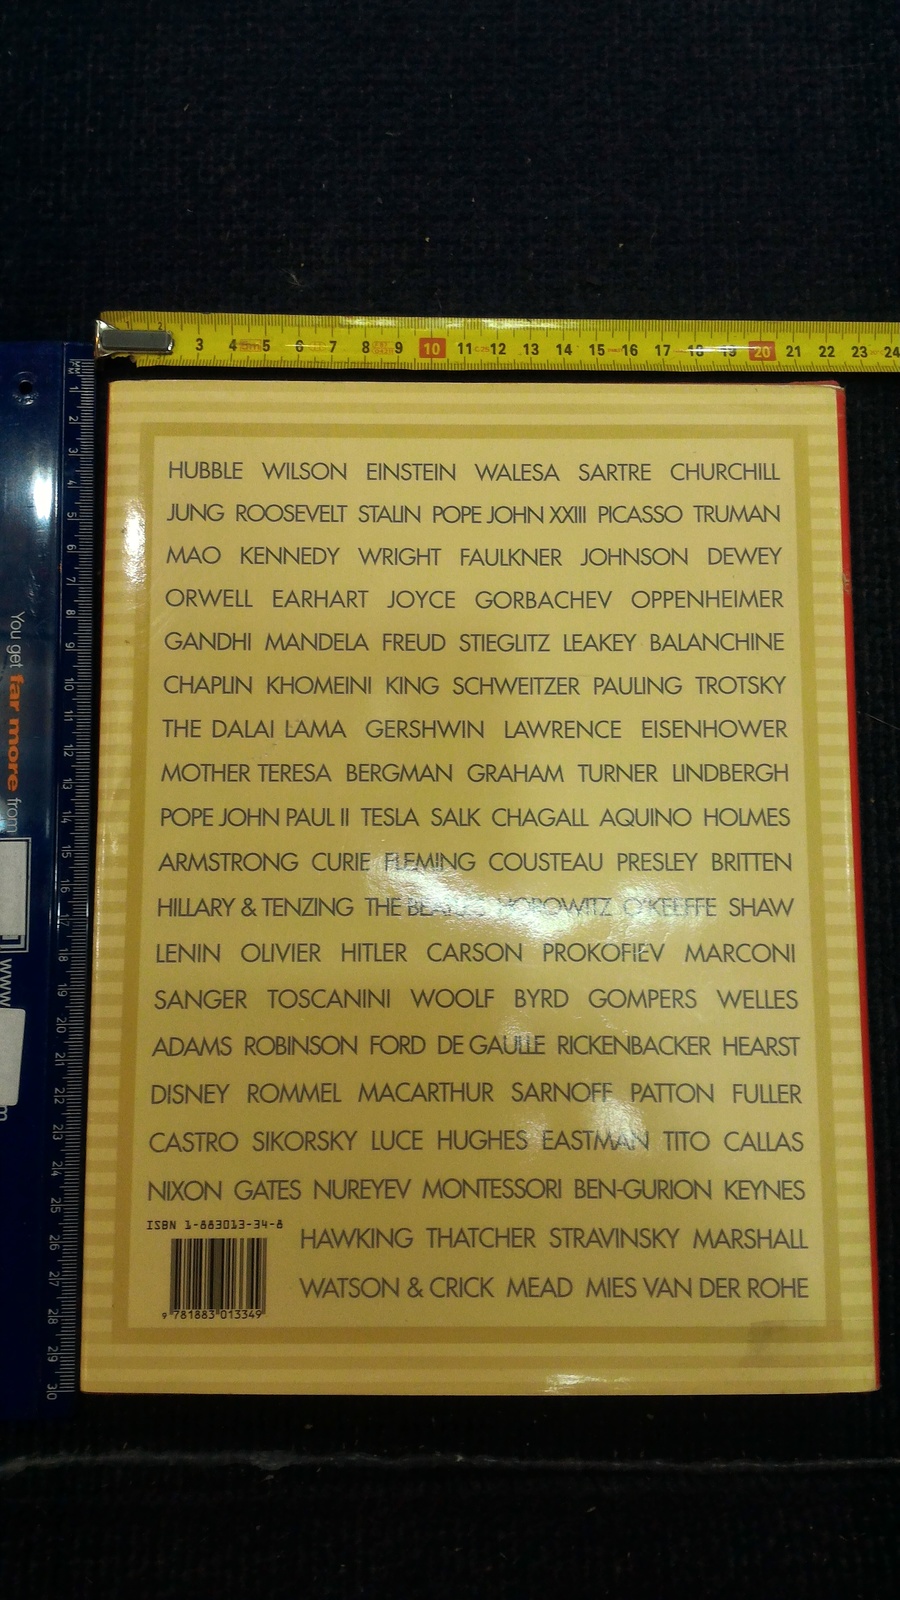 1 2 3 4 5 6 7 8 9 10 11 12 13 14 15 16 17 18 19 20 21 22 23 24
HUBBLE WILSON EINSTEIN WALESA SARTRE CHURCHILL
JUNG ROOSEVELT STALIN POPE JOHN XXIII PICASSO TRUMAN
MAO KENNEDY WRIGHT FAULKNER JOHNSON DEWEY
ORWELL EARHART JOYCE GORBACHEV OPPENHEIMER
GANDHI MANDELA FREUD STIEGLITZ LEAKEY BALANCHINE
CHAPLIN KHOMEINI KING SCHWEITZER PAULING TROTSKY
THE DALAI LAMA GERSHWIN LAWRENCE EISENHOWER
MOTHER TERESA BERGMAN GRAHAM TURNER LINDBERGH
POPE JOHN PAUL II TESLA SALK CHAGALL AQUINO HOLMES
ARMSTRONG CURIE FLEMING COUSTEAU PRESLEY BRITTEN
HILLARY & TENZING THE BEATLES HOROWITZ O'KEEFFE SHAW
LENIN OLIVIER HITLER CARSON PROKOFIEV MARCONI
SANGER TOSCANINI WOOLF BYRD GOMPERS WELLES
ADAMS ROBINSON FORD DE GAULLE RICKENBACKER HEARST
DISNEY ROMMEL MACARTHUR SARNOFF PATTON FULLER
CASTRO SIKORSKY LUCE HUGHES EASTMAN TITO CALLAS
NIXON GATES NUREYEV MONTESSORI BEN-GURION KEYNES
HAWKING THATCHER STRAVINSKY MARSHALL
WATSON & CRICK MEAD MIES VAN DER ROHE
ISBN 1-883013-34-8
9 781883 013349
You get far more from
www.
1 2 3 4 5 6 7 8 9 10 11 12 13 14 15 16 17 18 19 20 21 22 23 24 25 26 27 28 29 30